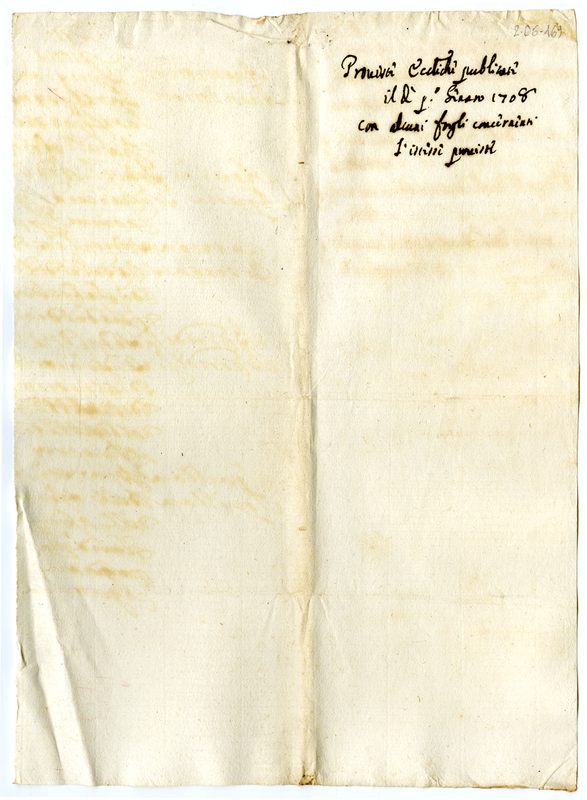 2-DG-169
Provisti Ecctichi publicati
il dì p.º Genaro 1708
con alcuni fogli concernenti
l'istessi provisti